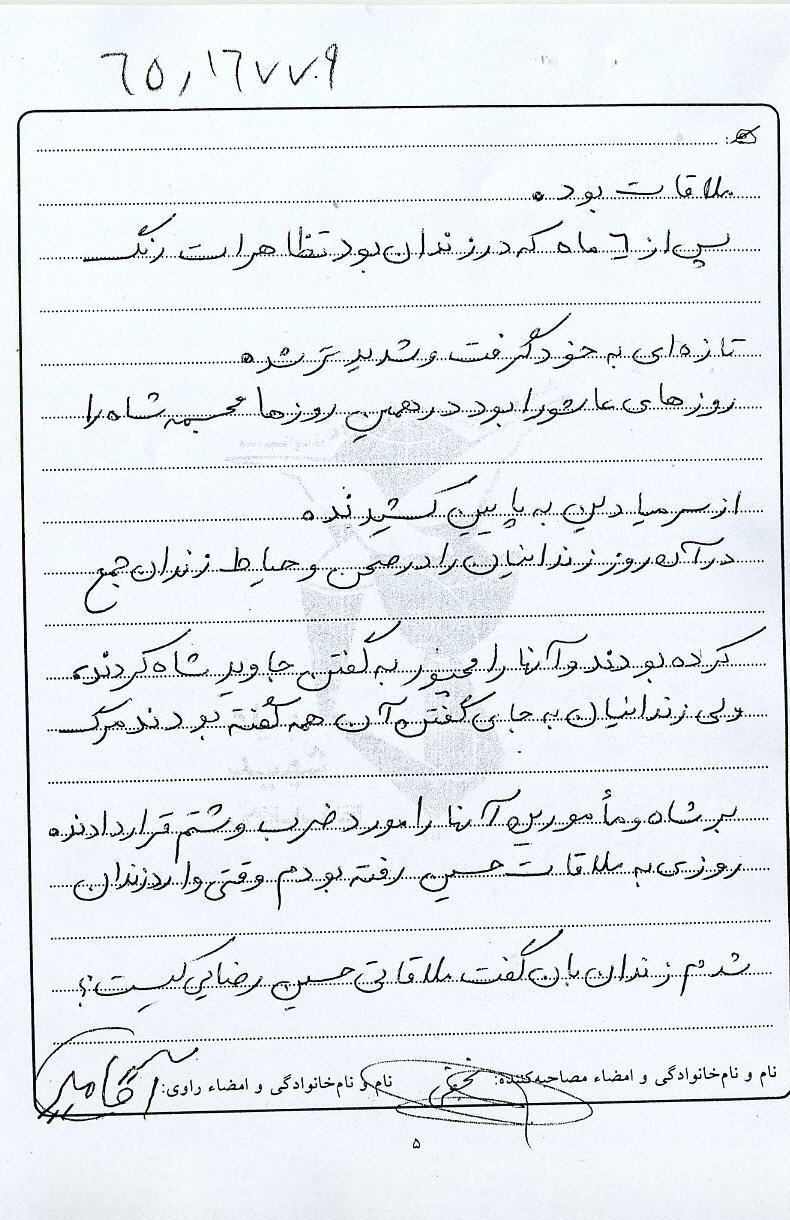 ٦٥٫١٦٧٧٠٩
ملاقات بود.
پس از ٦ ماه که در زندان بود تظاهرات رنگ
تازه‌ای به خود گرفت و شدید تر شد.
روزهای عاشورا بود در همین روزها مجسمه شاه را
از سر میادین به پایین کشیدند.
در آن روز زندانیان را در صحن و حیاط زندان جمع
کرده بودند و آنها را مجبور به گفتن جاوید شاه کردند،
ولی زندانیان به جای گفتن آن همه گفته بودند مرگ
بر شاه و مأمورین آنها را مورد ضرب و شتم قرار دادند.
روزی به ملاقات حسین رفته بودم وقتی وارد زندان
شدم زندان بان گفت ملاقاتی حسین رضایی کیست؟
نام و نام‌خانوادگی و امضاء مصاحبه‌کننده:
نام و نام‌خانوادگی و امضاء راوی:
۵